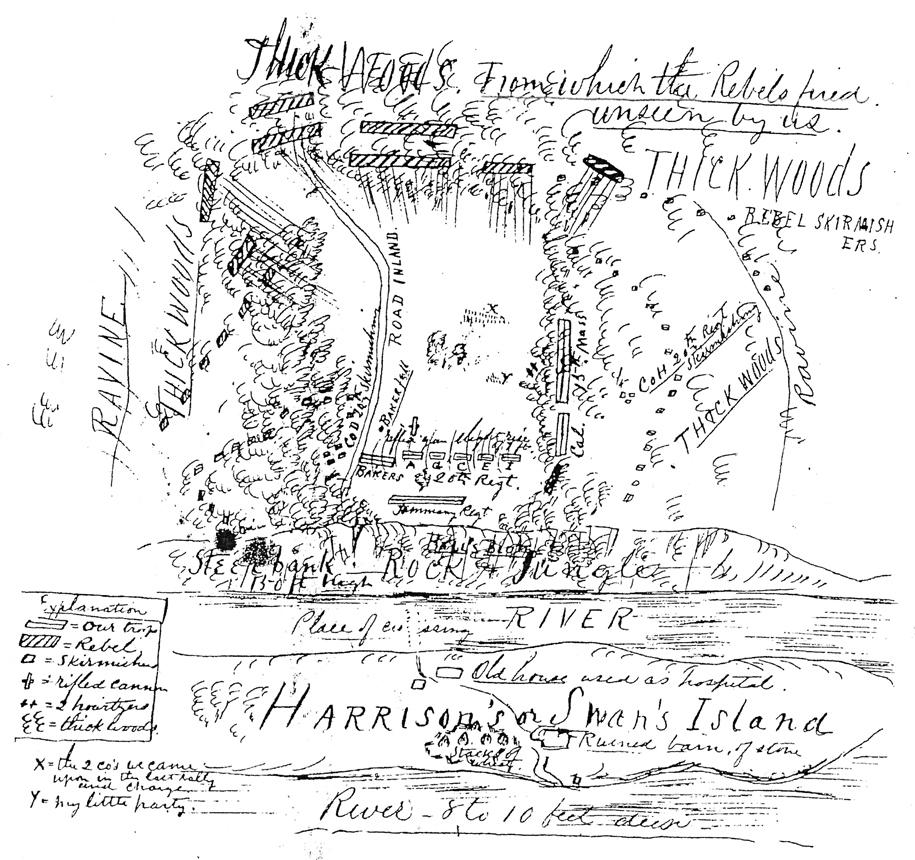 THICK WOODS. From which the Rebels fired
unseen by us.
THICK WOODS
REBEL SKIRMISH
ERS.
RAVINE
THICK WOODS
ROAD INLAND.
X
Y
15th Mass
Co H 20th Regt
Skirmishing
THICK WOODS
Ravine
Co D 20th Skirmishing
BAKER Fell
A G C E I
BAKERS
20th Regt.
Cal.
Tammany Regt
Steep bank
150 ft High
ROCK & Jungle
Place of crossing
RIVER
Explanation
= Our troops
= Rebel
= Skirmishers
= rifled cannon
= 2 howitzers
= thick woods.
Old house used as hospital.
HARRISON'S or Swan's Island
Stacks of wheat
Ruined barn, of stone
X = the 2 co's we came
upon in the last rally
and charge.
Y = my little party.
River - 8 to 10 feet deep